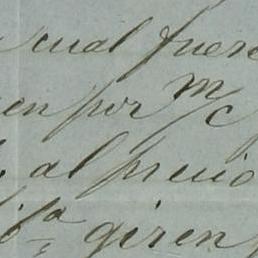 cual fuere
en por m/c
al precio
fa giren